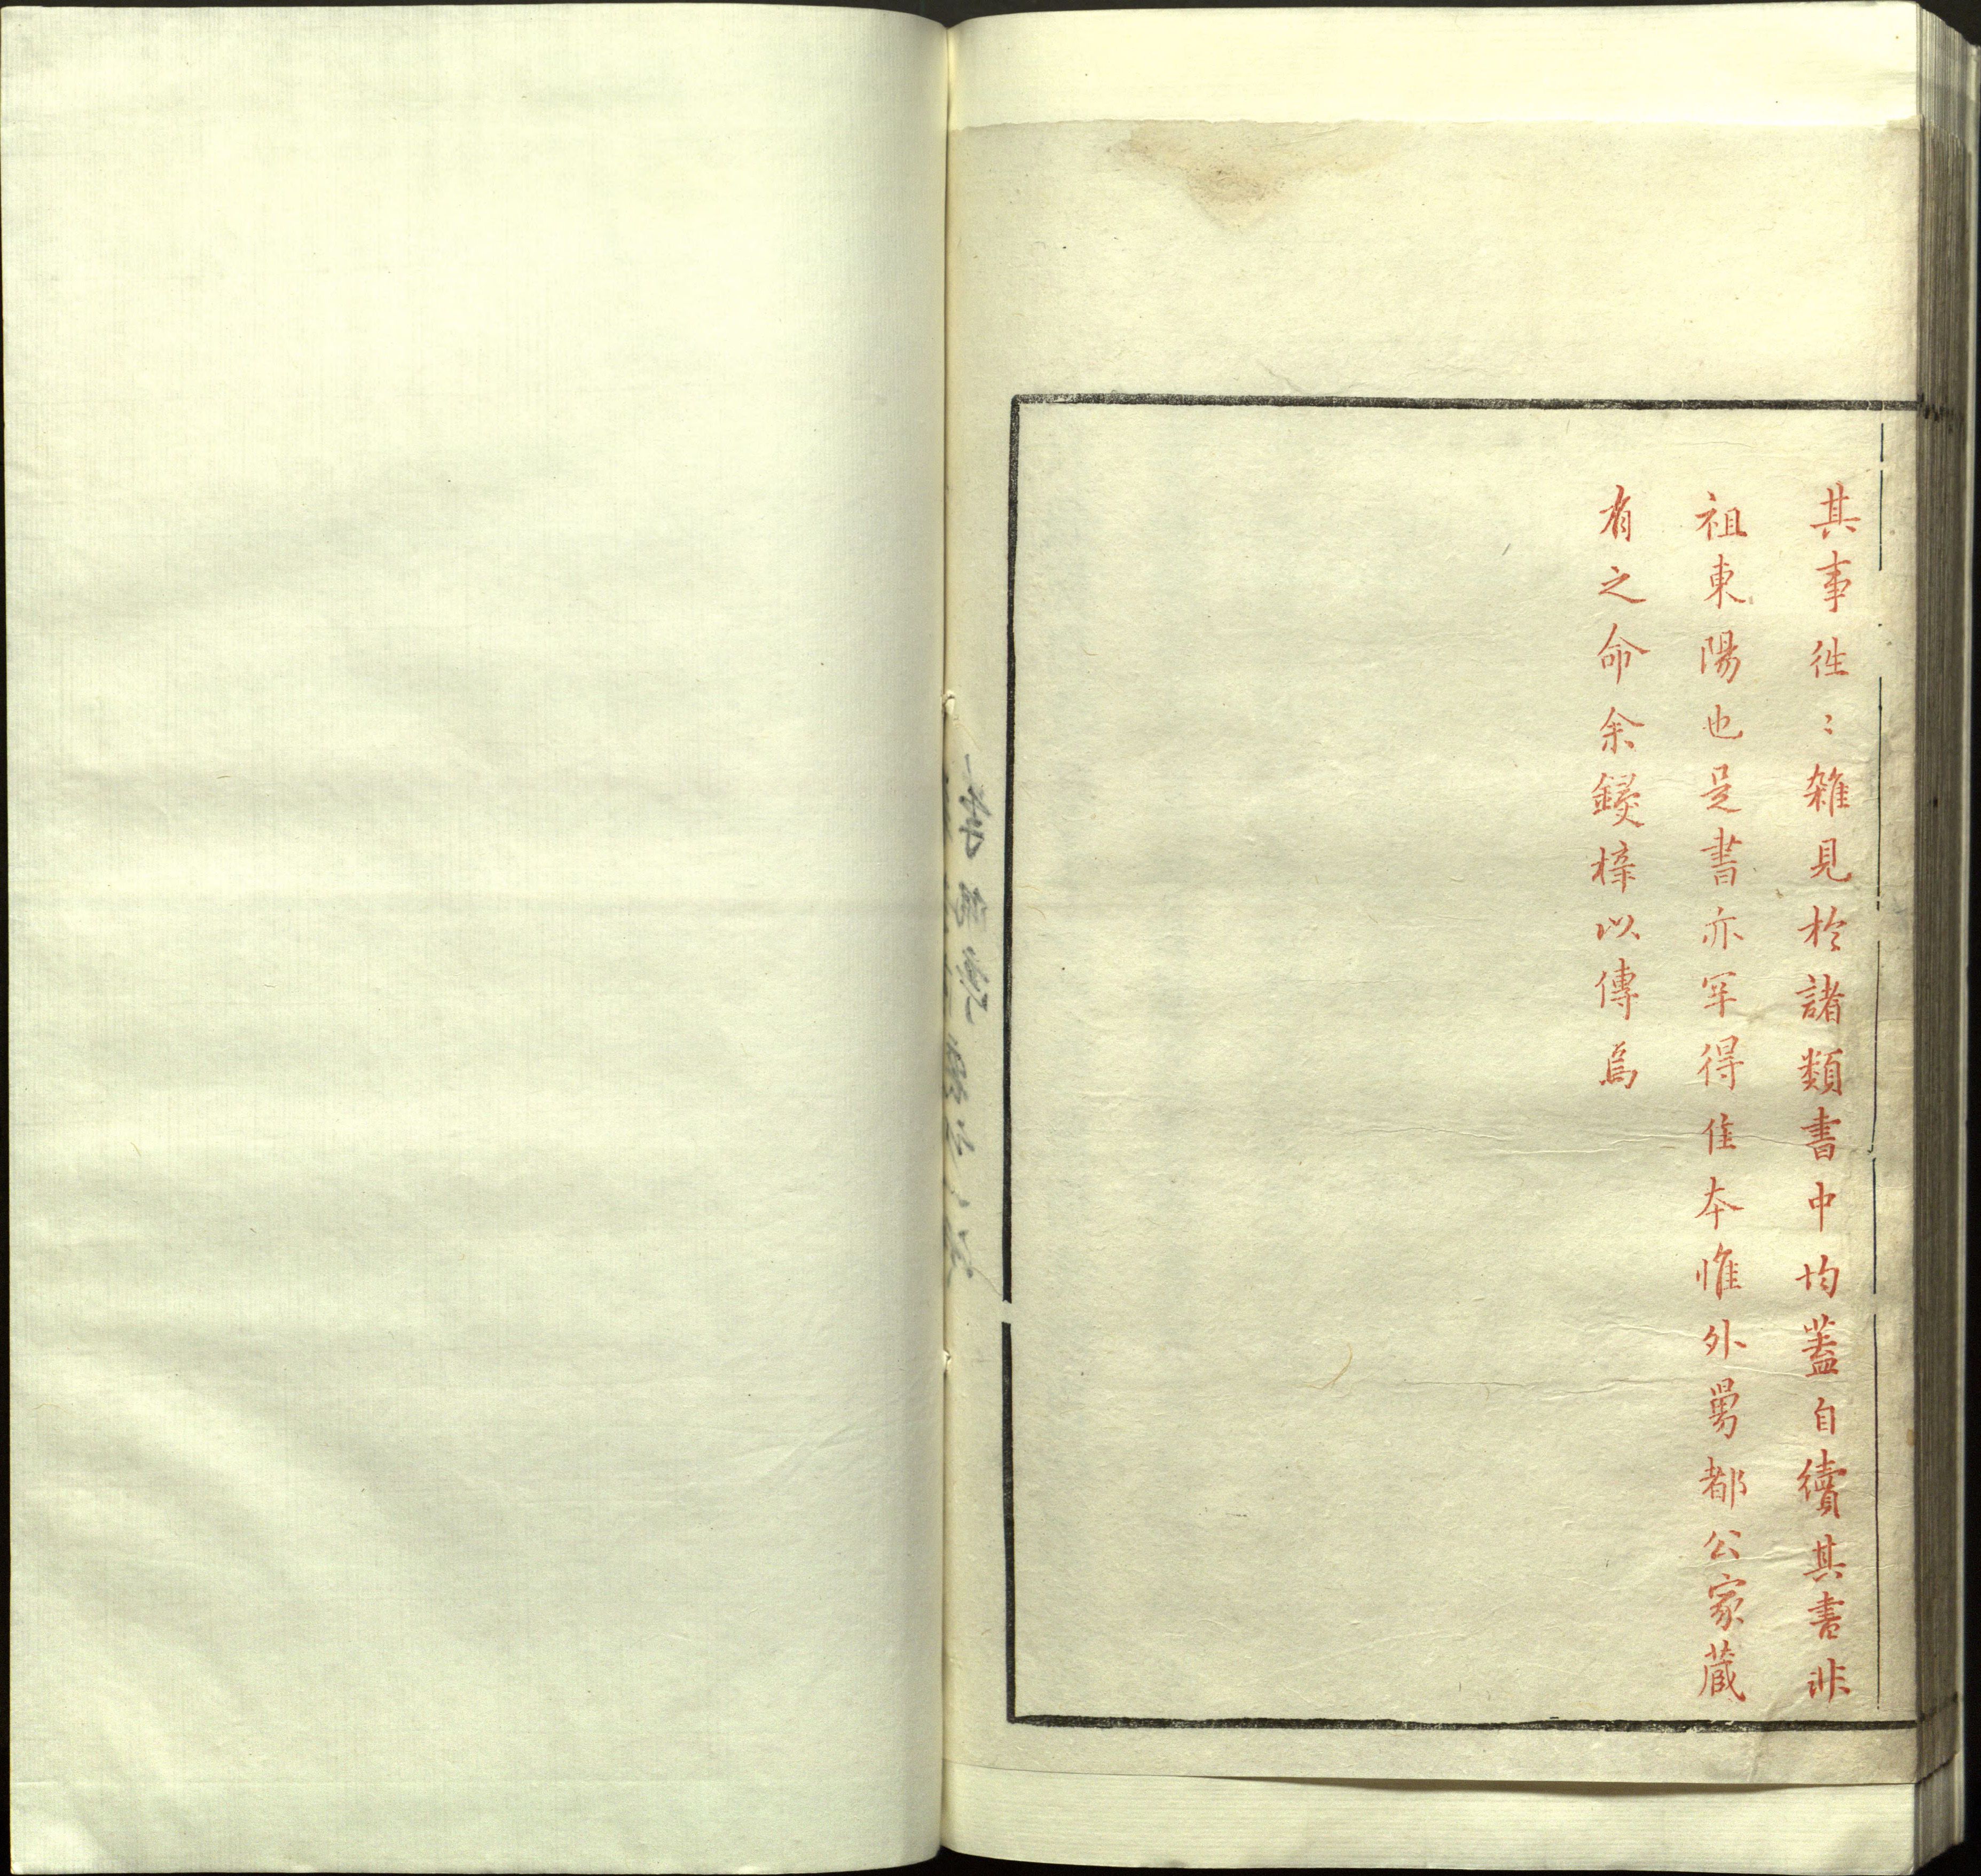 其事徃〻雜見於諸類書中均蓋自續其書非
祖東陽也是書亦罕得佳本惟外舅都公家蔵
有之命余鋟梓以傳焉